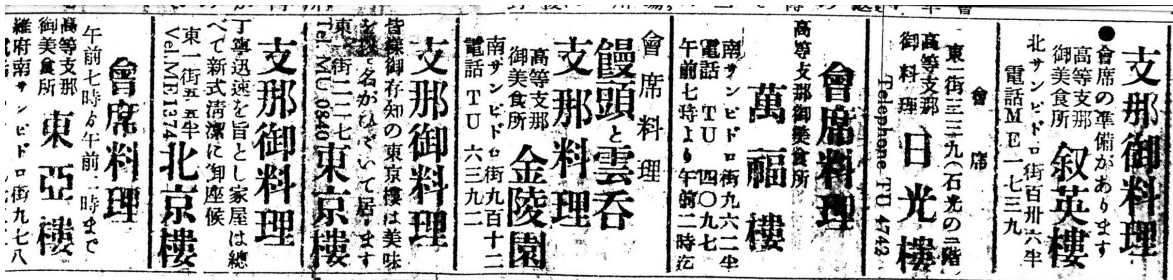 支那御料理
●會席の準備があります
高等支那
御美食所
叙英樓
北サンピドロ街百卅六半
電話ME一七三九
會席
東一街三三九(石光の二階
高等支那
御料理
日光樓
Telephone TU 4742
會席料理
高等支那御美食所
萬福樓
南サンピドロ街九六二半
電話 TU 四〇九七
午前七時より午前二時迄
會席料理
饅頭と雲呑
支那料理
高等支那
御美食所
金陵園
南サンピドロ街九百十二
電話 TU 六三九二
支那御料理
皆樣御存知の東京樓は美味
を以て名がひゞいて居ます
東一街二二七
Tel. MU 0840
東京樓
支那御料理
丁寧迅速を旨とし家屋は總
べて新式清潔に御座候
東一街五五半
Vel.ME1374
北京樓
會席料理
午前七時ゟ午前一時まで
高等支那
御美食所
東亞樓
羅府南サンピドロ街九七八